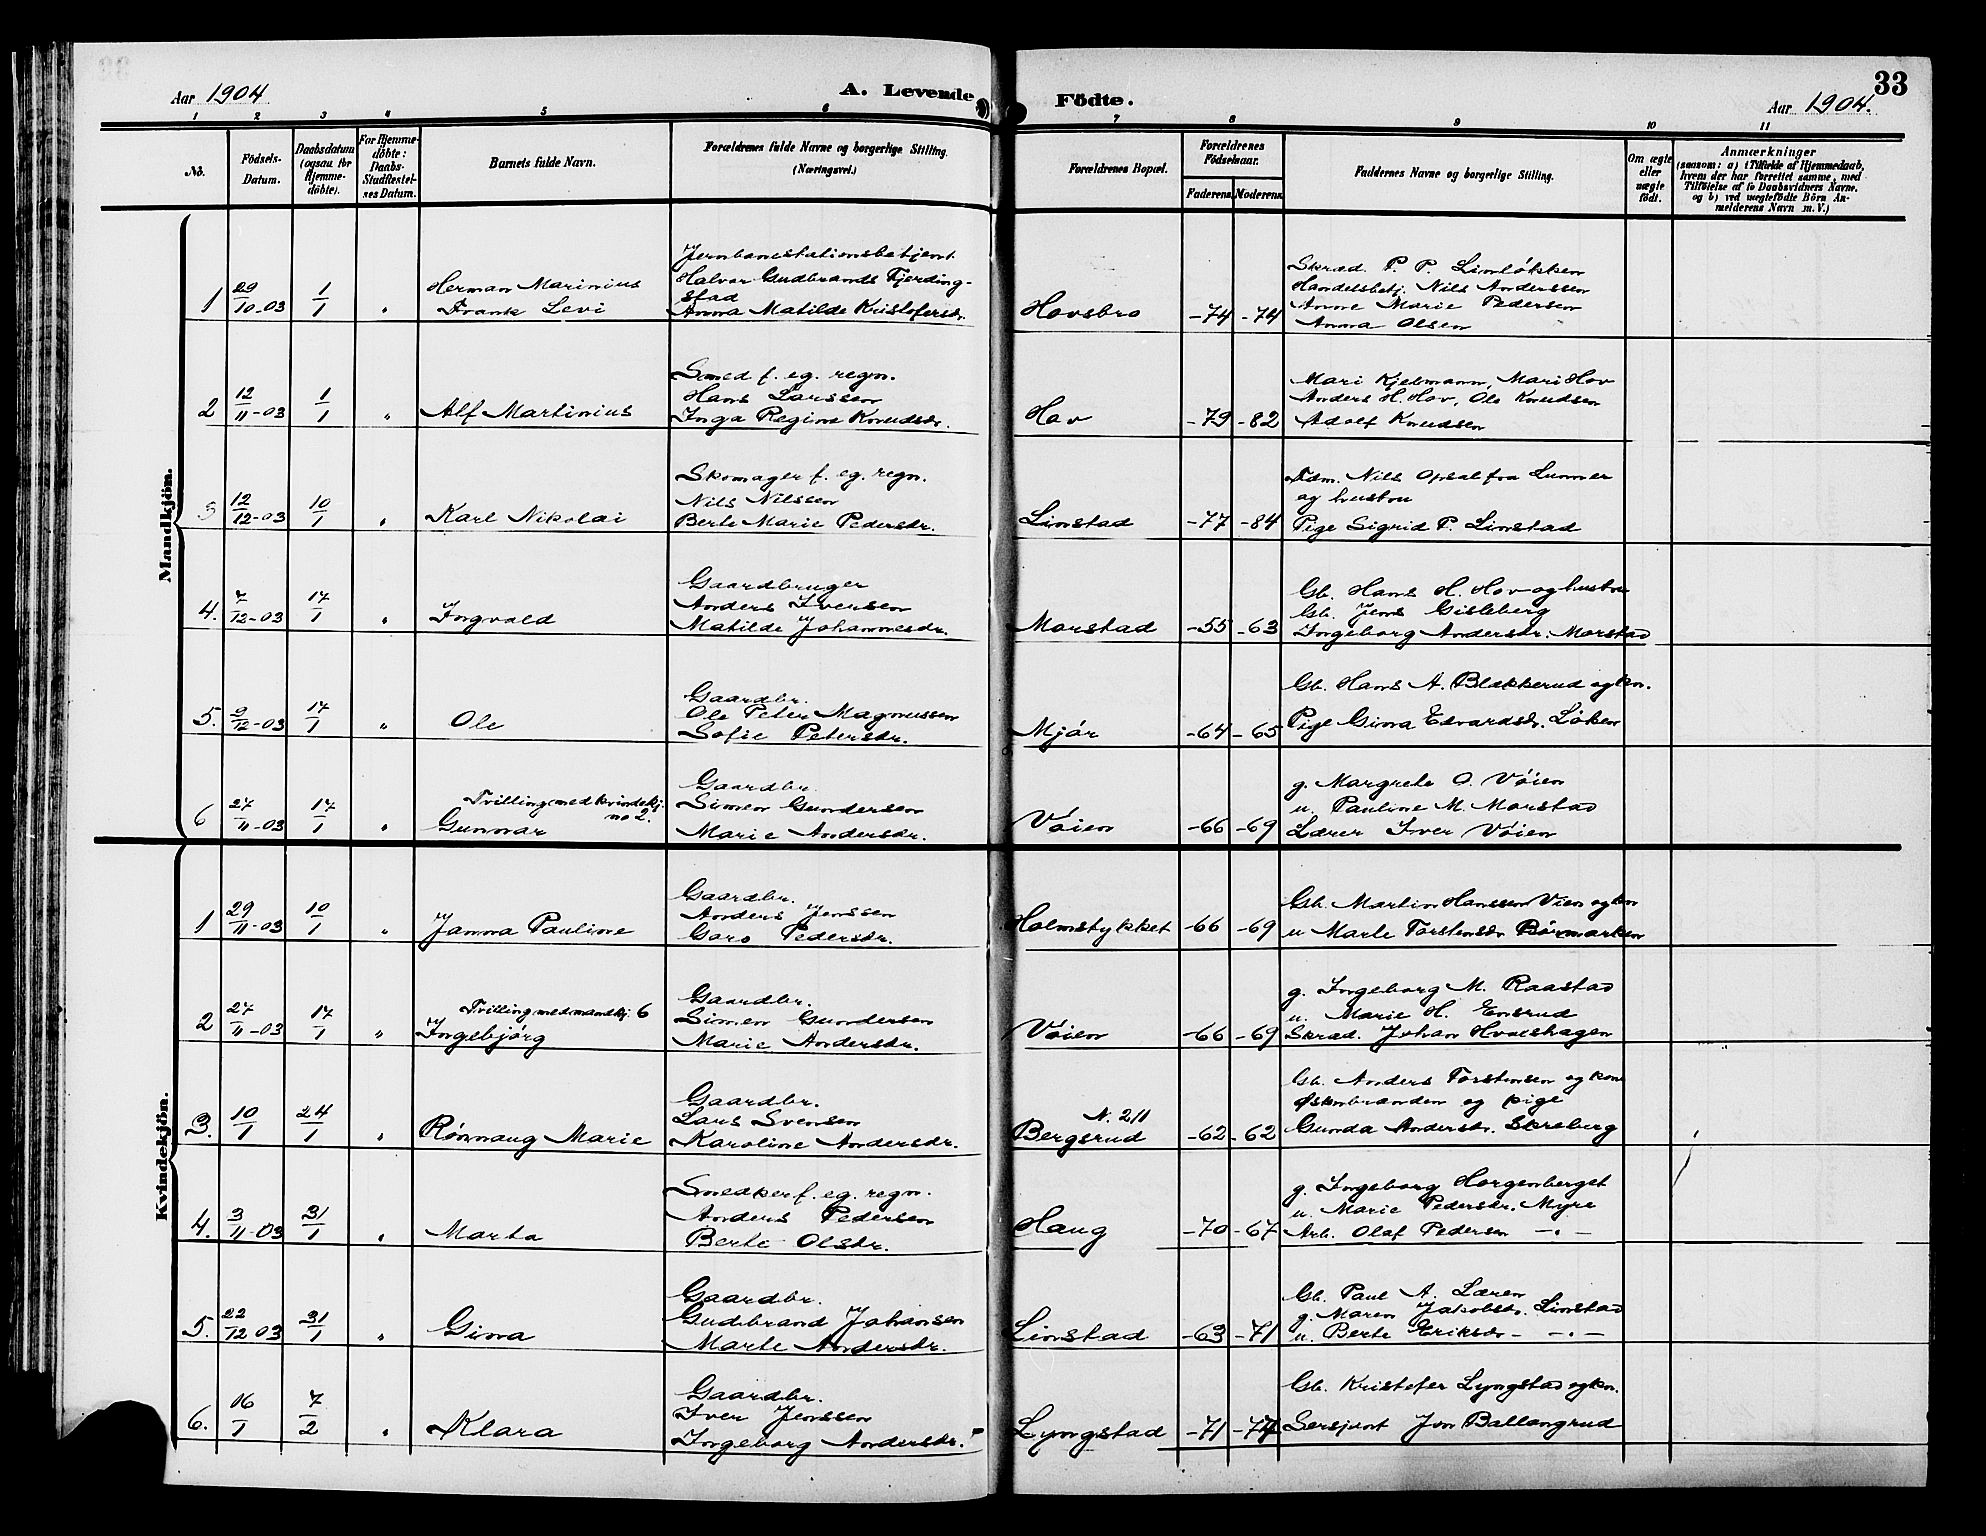 33
Aar 1904
A. Levende Födte.
Aar 1904.
1 2 3 4 5 6 7 8 9 10 11
No.
Födsels-
Datum.
Daabsdatum
(ogsaa for
Hjemme-
döbte).
For Hjemme-
döbte:
Daabs-
Stadfæstel-
ses Datum.
Barnets fulde Navn.
Forældrenes fulde Navne og borgerlige Stilling.
(Næringsvei.)
Forældrenes Bopæl.
Forældrenes
Födselsaar.
Faderens. Moderens.
Faddernes Navne og borgerlige Stilling.
Om ægte
eller
uægte
födt.
Anmærkninger
(saasom: a) i Tilfælde af Hjemmedaab,
hvem der har forrettet samme, med
Tilföielse af to Daabsvidners Navne,
og b) ved uægtefödte Börn An-
melderens Navn m. V.)
Mandkjön.
1 29/10-03 1/1 "
Herman Marinius
Frank Levi
Jernbanestationsbetjent
Halvor Gudbrands Fjerding-
stad
Anna Matilde Kristofersdr.
Hovsbro -74 -74
Skræd. P. P. Limløkken
Handelsbetj. Nils Anderssen
Anne Marie Pedersen
Anna Olsen
2 12/11-03 1/1 " Alf Martinius
Smed f. eg. regn.
Hans Larssen
Inga Regine Knudsdr.
Hov -79 -82
Mari Kjelmann, Mari Hov
Anders H. Hov, Ole Knudsen
Adolf Knudsen
3 12/12-03 10/1 " Karl Nikolai
Skomager f. eg. regn.
Nils Nilssen
Berte Marie Pedersdr.
Linstad -77 -84
Tøm. Nils Opsal fra Lunner
og hustru
Pige Sigrid P. Linstad
4. 7/12-03 17/1 " Ingvald
Gaardbruger
Anders Iversen
Matilde Johannesdr.
Morstad -55 -63
Gb. Hans H. Hov og hustru
Gb. Jens Gisleberg
Ingeborg Andersdr. Morstad
5. 9/12-03 17/1 " Ole
Gaardbr.
Ole Peter Magnussen
Sofie Petersdr.
Mjør -64 -65
Gb. Hans A. Blekkerud og kn.
Pige Gina Edvardsdr. Løken
6 27/11-03 17/1 "
Tvilling med kvindekj.
no 2.
Gunnar
Gaardbr.
Simen Gundersen
Marie Andersdr.
Vøien -66 -69
g. Margrete O. Vøien
u. Pauline M. Morstad
Lærer Iver Vøien
Kvindekjön.
1 29/11-03 10/1 " Janna Pauline
Gaardbr.
Anders Jenssen
Goro Pedersdr.
Holmstykket -66 -69
Gb. Martin Hanssen Vien og kn
u Marte Torstensdr Børmarken
2 27/11-03 17/1 "
Tvilling med mandkj. 6
Ingebjørg
Gaardbr.
Simen Gundersen
Marie Andersdr.
Vøien -66 -69
g. Ingeborg M. Raastad
u. Marie H. Ensrud
Skræd. Johan Hvalshagen
3. 10/1 24/1 " Rønnaug Marie
Gaardbr.
Lars Svensen
Karoline Andersdr.
N. 211
Bergsrud -62 -62
Gb. Anders Torstensen og kone
Øskenbrænden og pige
Gunda Andersdr. Skreberg
4. 3/11-03 31/1 " Marta
Smedker f. eg. regn.
Anders Pedersen
Berte Olsdr.
Haug -70 -67
g. Ingeborg Horgenberget
u. Marie Pedersdr. Myre
Arb. Olaf Pedersen - " -
5. 22/12 03 31/1 " Gina
Gaardbr.
Gudbrand Johansen
Marte Andersdr.
Linstad -63 -71
Gb. Paul A. Læren
g. Maren Jakobsdr. Linstad
u. Berte Eriksdr - - " -
6. 16/1 7/2 " Klara
Gaardbr.
Iver Jenssen
Ingeborg Andersdr.
Lyngstad -71 -74
Gb. Kristofer Lyngstad og kn.
Sersjent Jon Ballangrud